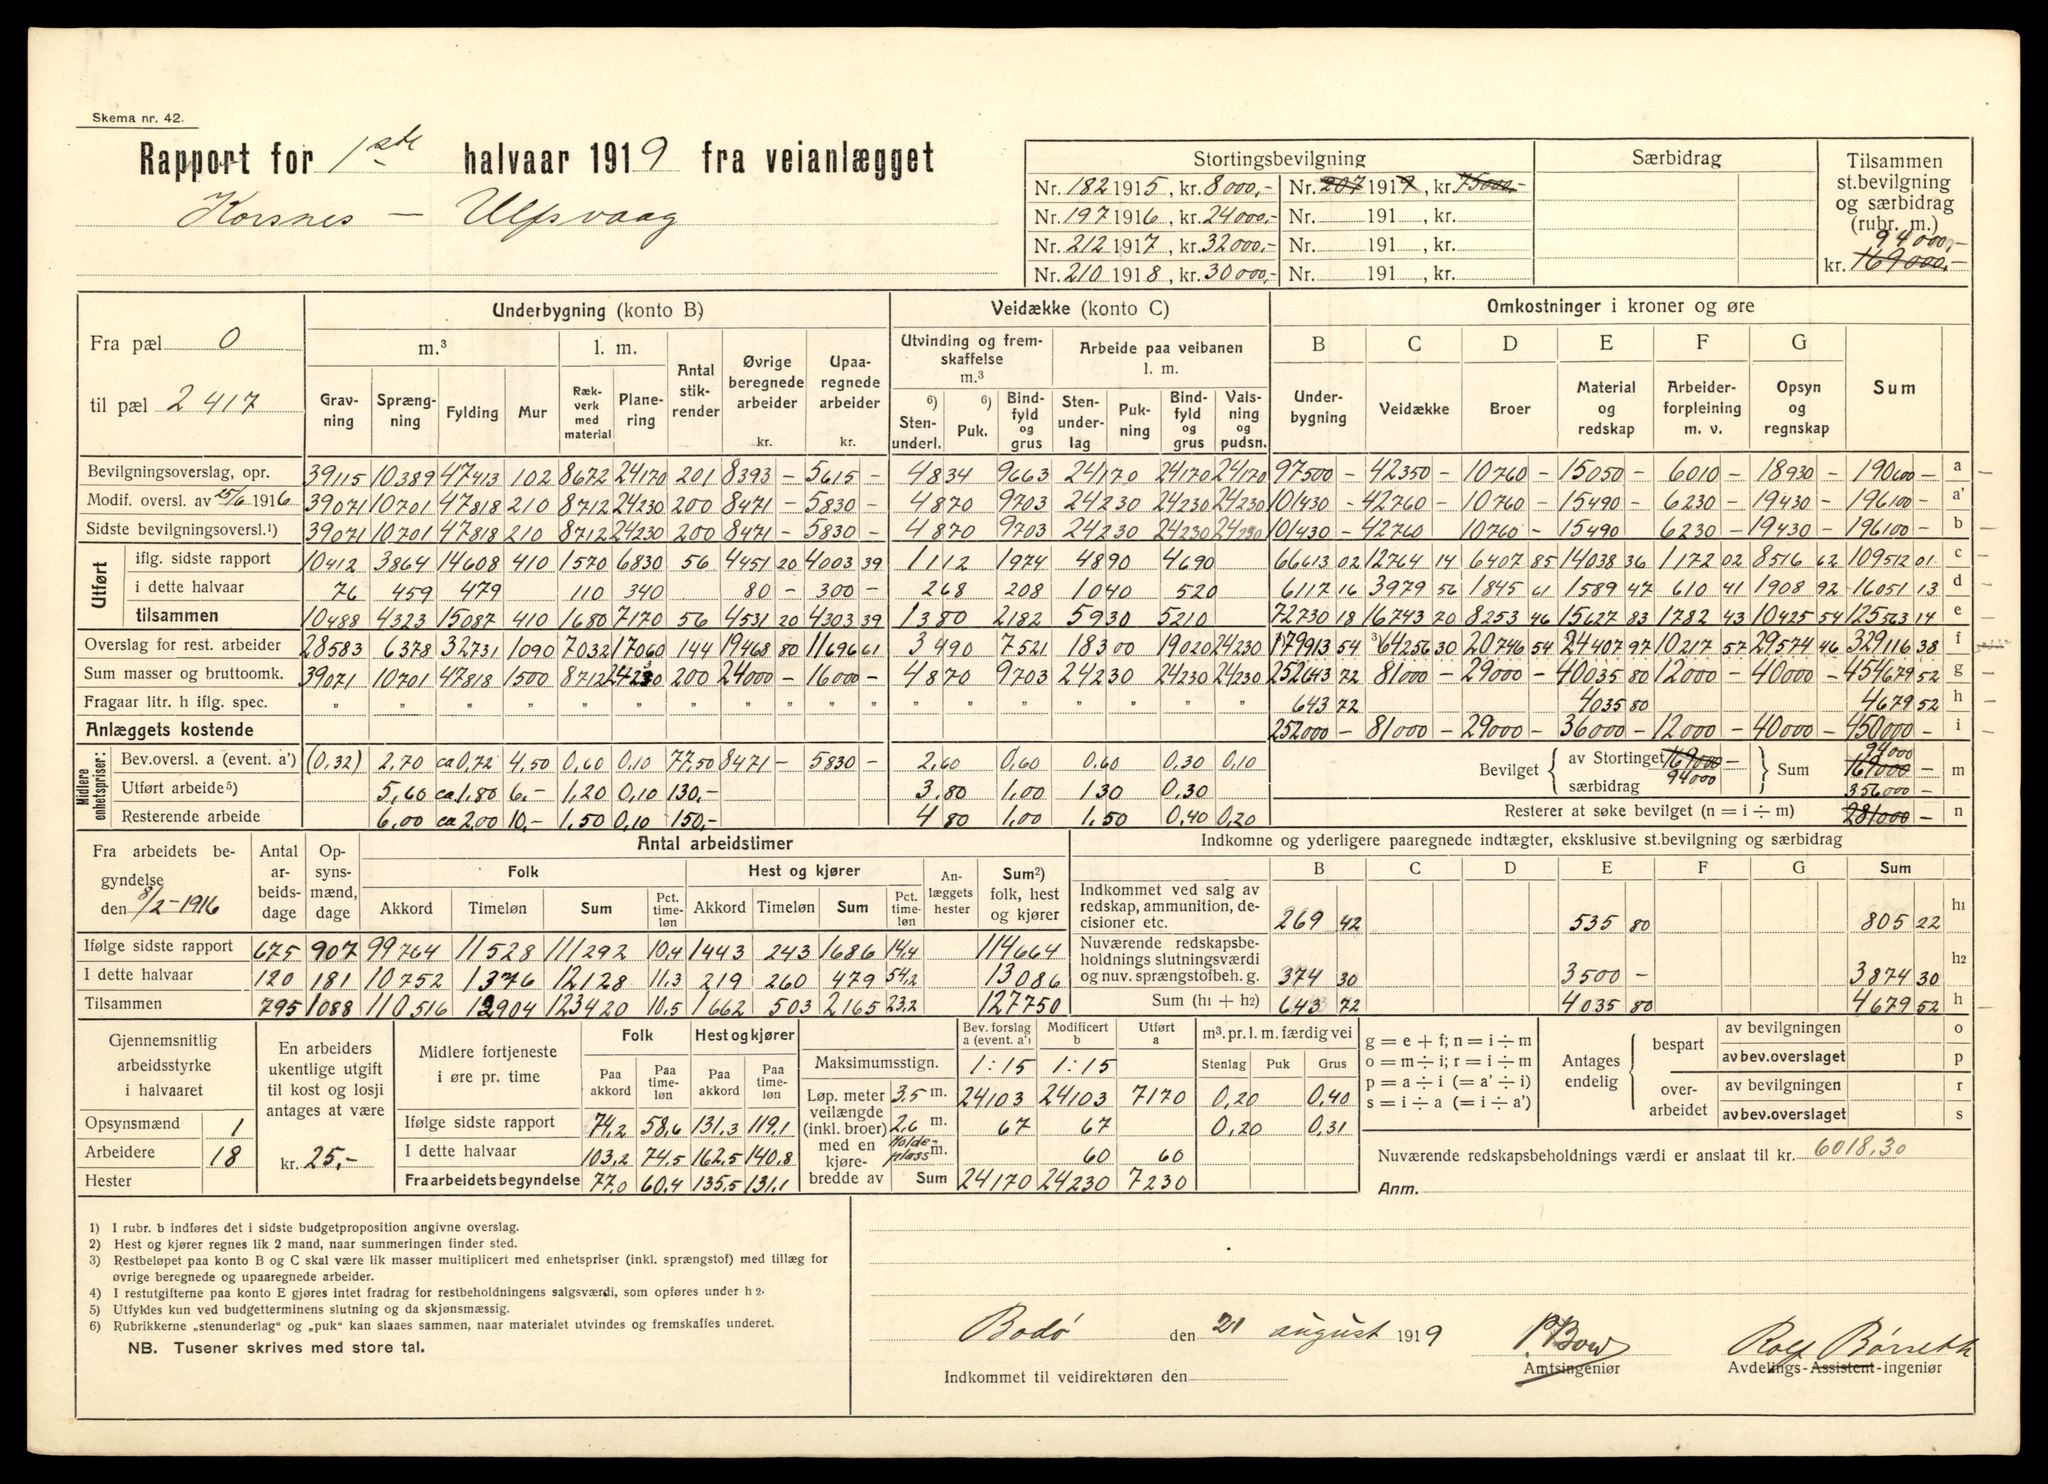 Skema nr. 42.
Rapport for 1ste halvaar 1919 fra veianlægget
Korsnes — Ulfsvaag
Stortingsbevilgning Særbidrag Tilsammen st.bevilgning og særbidrag (rubr. m.)
Nr. 182 1915, kr. 8000,- Nr. 207 1919, kr. 75000,-
Nr. 197 1916, kr. 24000,- Nr. 191 , kr.
Nr. 212 1917, kr. 32000,- Nr. 191 , kr. 94000,-
Nr. 210 1918, kr. 30000,- Nr. 191 , kr. kr. 169000,-
Fra pæl 0
til pæl 2417
Underbygning (konto B) Veidække (konto C) Omkostninger i kroner og øre
m.³ l. m. Antal stikrender Øvrige beregnede arbeider kr. Upaaregnede arbeider kr. Utvinding og fremskaffelse m.³ Arbeide paa veibanen l. m. B C D E F G
Gravning Sprængning Fylding Mur Rækverk med material Planering 6) Stenunderl. 6) Puk. Bindfyld og grus Stenunderlag Pukning Bindfyld og grus Valsning og pudsn. Underbygning Veidække Broer Material og redskap Arbeiderforpleining m. v. Opsyn og regnskap Sum
Bevilgningsoverslag, opr. 39115 10389 47413 102 8672 24170 201 8393 – 5615 – 4834 9663 24170 24170 24170 97500 – 42350 – 10760 – 15050 – 6010 – 18930 – 190600 – a
Modif. oversl. av 25/6 1916 39071 10701 47818 210 8712 24230 200 8471 – 5830 – 4870 9703 24230 24230 24230 101430 – 42760 – 10760 – 15490 – 6230 – 19430 – 196100 – a'
Sidste bevilgningsoversl.¹) 39071 10701 47818 210 8712 24230 200 8471 – 5830 – 4870 9703 24230 24230 24230 101430 – 42760 10760 – 15490 6230 – 19430 – 196100 – b
Utført
iflg. sidste rapport 10412 3864 14608 410 1570 6830 56 4451 20 4003 39 1112 1974 4890 4690 66613 02 12764 14 6407 85 14038 36 1172 02 8516 62 109512 01 c
i dette halvaar 76 459 479 110 340 80 – 300 – 268 208 1040 520 6117 16 3979 56 1845 61 1589 47 610 41 1908 92 16051 13 d
tilsammen 10488 4323 15087 410 1680 7170 56 4531 20 4303 39 1380 2182 5930 5210 72730 18 16743 70 8253 46 15627 83 1782 43 10425 54 125563 14 e
Overslag for rest. arbeider 28583 6378 32731 1090 7032 17060 144 19468 80 11696 61 3490 7521 18300 19020 24230 179913 54 ³64256 30 20746 54 24407 97 10217 57 29574 46 329116 38 f
Sum masser og bruttoomk. 39071 10701 47818 1500 8712 24230 200 24000 – 16000 – 4870 9703 24230 24230 24230 252643 72 81000 – 29000 – 40035 80 12000 – 40000 – 454679 52 g
Fragaar litr. h iflg. spec. " " " " " " " " " " " " " " 643 72 4035 80 4679 52 h
Anlæggets kostende 252000 – 81000 – 29000 – 36000 – 12000 – 40000 – 450000 – i
Midlere enhetspriser:
Bev.oversl. a (event. a') (0.32) 2,70 ca 0,72 4,50 0,60 0,10 77,50 8471 – 5830 – 2,60 0,60 0,60 0,30 0,10 Bevilget av Stortinget 169000 – særbidrag 94000 Sum 94000 169000 – m
Utført arbeide⁵) 5,60 ca 1,80 6,- 1,20 0,10 130,- 3,80 1,00 1 30 0,30 356000 –
Resterende arbeide 6,00 ca 2,00 10,- 1,50 0,10 150,- 4 80 1,00 1,50 0,40 0,20 Resterer at søke bevilget (n = i ÷ m) 281000 – n
Fra arbeidets begyndelse den 8/2-1916 Antal arbeidsdage Opsynsmænd, dage Antal arbeidstimer Indkomne og yderligere paaregnede indtægter, eksklusive st.bevilgning og særbidrag
Folk Hest og kjører Anlæggets hester Sum²) folk, hest og kjører B C D E F G Sum
Akkord Timeløn Sum Pct. timeløn Akkord Timeløn Sum Pct. timeløn
Indkommet ved salg av redskap, ammunition, decisioner etc. 269 42 535 80 805 22 h1
Ifølge sidste rapport 675 907 99764 11528 111292 10,4 1443 243 1686 14,4 114664
I dette halvaar 120 181 10752 1376 12128 11,3 219 260 479 54,2 13086
Nuværende redskapsbeholdnings slutningsværdi og nuv. sprængstofbeh. g. 374 30 3500 – 3874 30 h2
Tilsammen 795 1088 110516 12904 123420 10,5 1662 503 2165 23,2 127750 Sum (h1 + h2) 643 72 4035 80 4679 52 h
Gjennemsnitlig arbeidsstyrke i halvaaret
Opsynsmænd 1
Arbeidere 18
Hester
En arbeiders ukentlige utgift til kost og losji antages at være
kr. 25,-
Midlere fortjeneste i øre pr. time Folk Hest og kjører
Paa akkord Paa timeløn Paa akkord Paa timeløn
Ifølge sidste rapport 74,2 58,6 131,3 119,1
I dette halvaar 103,2 74,5 162,5 140,8
Fra arbeidets begyndelse 77,0 60,4 135,5 131,1
Bev. forslag a (event. a') Modificert b Utført a m³. pr. l. m. færdig vei
Maksimumsstign. 1:15 1:15 Stenlag Puk Grus
Løp. meter veilængde (inkl. broer) med en kjørebredde av
3.5 m. 24103 24103 7170 0,20 0,40
2.6 m. 67 67 0,20 0,31
Holdeplass m. 60 60
Sum 24170 24230 7230
g = e + f; n = i ÷ m
o = m ÷ i; r = i ÷ m
p = a ÷ i (= a' ÷ i)
s = i ÷ a (= i ÷ a')
Antages endelig bespart av bevilgningen o
av bev.overslaget p
overarbeidet av bevilgningen r
av bev.overslaget s
Nuværende redskapsbeholdnings værdi er anslaat til kr. 6018,30
Anm.
1) I rubr. b indføres det i sidste budgetproposition angivne overslag.
2) Hest og kjører regnes lik 2 mand, naar summeringen finder sted.
3) Restbeløpet paa konto B og C skal være lik masser multiplicert med enhetspriser (inkl. sprængstof) med tillæg for
øvrige beregnede og upaaregnede arbeider.
4) I restutgifterne paa konto E gjøres intet fradrag for restbeholdningens salgsværdi, som opføres under h 2.
5) Utfyldes kun ved budgetterminens slutning og da skjønsmæssig.
6) Rubrikkerne „stenunderlag" og „puk" kan slaaes sammen, naar materialet utvindes og fremskaffes underet.
NB. Tusener skrives med store tal.
Bodø den 21 august 1919
Amtsingeniør
Rolf Børseth
Avdelings-Assistent-ingeniør
Indkommet til veidirektøren den